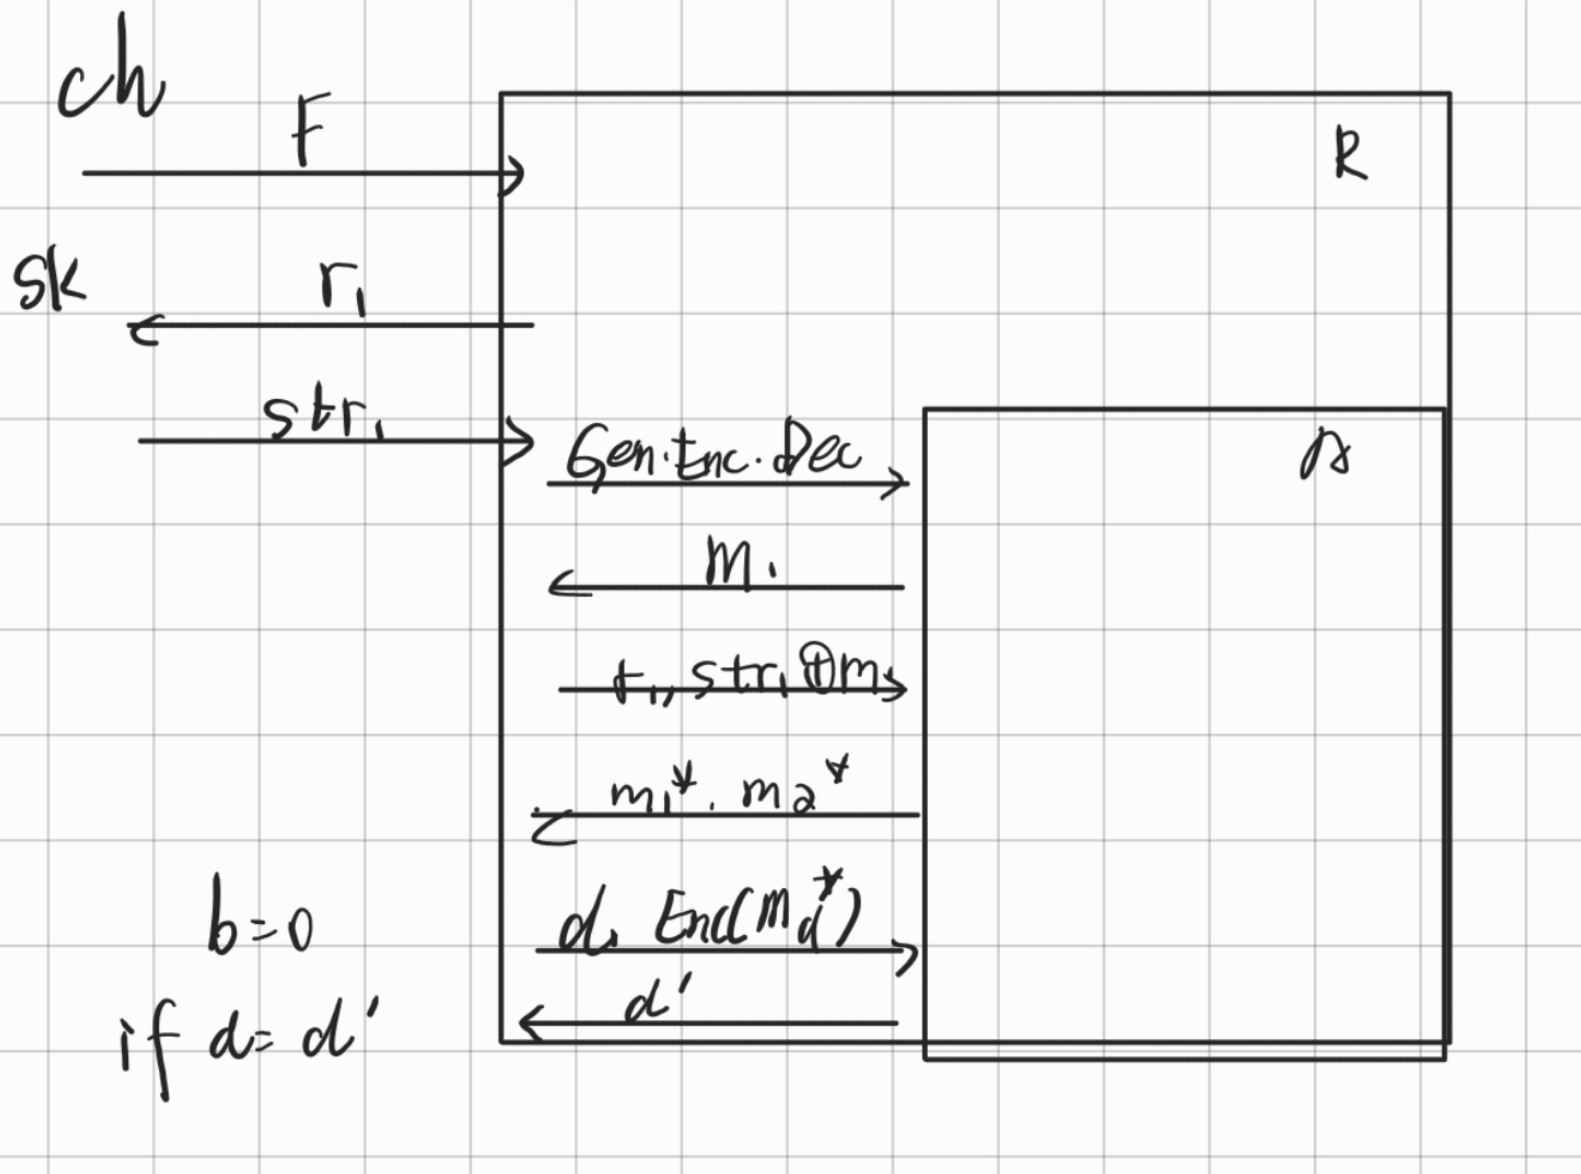 ch
F
R
sk
r₁
str₁
Gen. Enc. Dec
A
m₁
r₁, str₁⊕m₁
m₁*. m₂*
d, Enc(m_d*)
b=0
d'
if d=d'